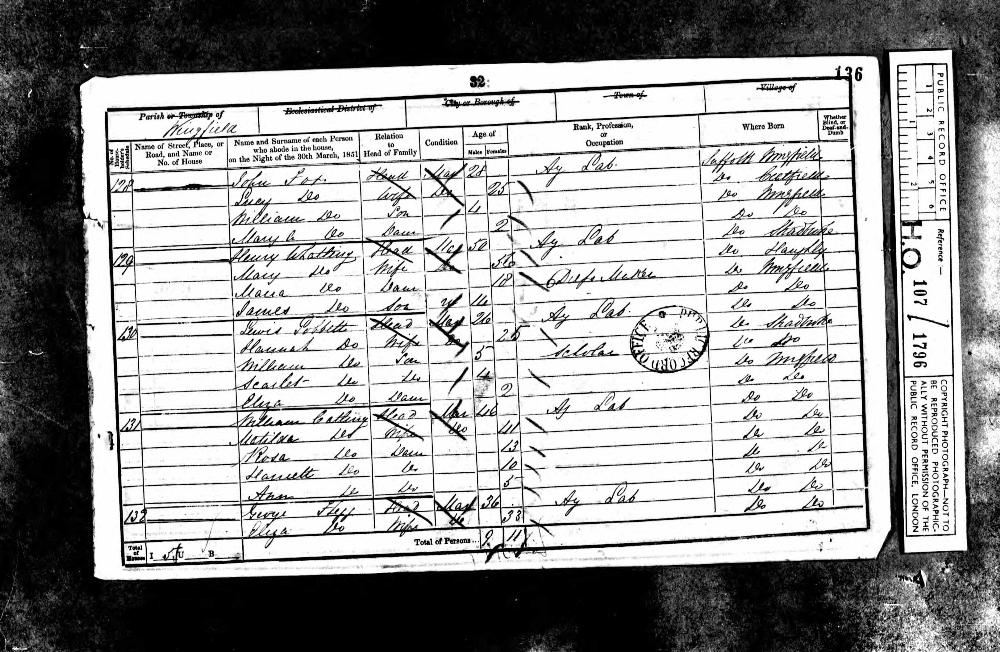 32
136
Parish or Township of
Ecclesiastical District of
City or Borough of
Town of
Village of
Wingfield
No. of Householder's Schedule
Name of Street, Place, or Road, and Name or No. of House
Name and Surname of each Person who abode in the house, on the Night of the 30th March, 1851
Relation to Head of Family
Condition
Age of
Males Females
Rank, Profession, or Occupation
Where Born
Whether Blind, or Deaf-and-Dumb
128 John Fox Head Mar 28 Ag Lab Suffolk Wingfield
Lucy Do Wife Do 25 Do
William Do Son 4 Do Wingfield
Mary A Do Daur 2 Do Do
129 Henry Whatling Head Mar 50 Ag Lab Do
Mary Do Wife Do 56 Do
Maria Do Daur 18 Do Wingfield
James Do Son 14 Do Do
130 Lewis Head Mar 26 Ag Lab Do Do
Hannah Do Wife Do 25 Do
William Do Son 5 Scholar Do Do
Scarlet Do Do 4 Do Wingfield
Eliza Do Daur 2 Do Do
131 William Head Mar 46 Ag Lab Do Do
Matilda Do Wife Do 41 Do Do
Rosa Do Daur 13 Do Do
Harriett Do Do 10 Do Do
Ann Do Do 5 Do Do
132 George Head Mar 36 Ag Lab Do Do
Eliza Do Wife Do 33 Do Do
Total of Houses I 5 U B
Total of Persons 9 11
PUBLIC RECORD OFFICE
PUBLIC RECORD OFFICE
1 2 3 4 5 6
Reference :-
H.O. 107 / 1796
COPYRIGHT PHOTOGRAPH—NOT TO BE REPRODUCED PHOTOGRAPHICALLY WITHOUT PERMISSION OF THE PUBLIC RECORD OFFICE, LONDON